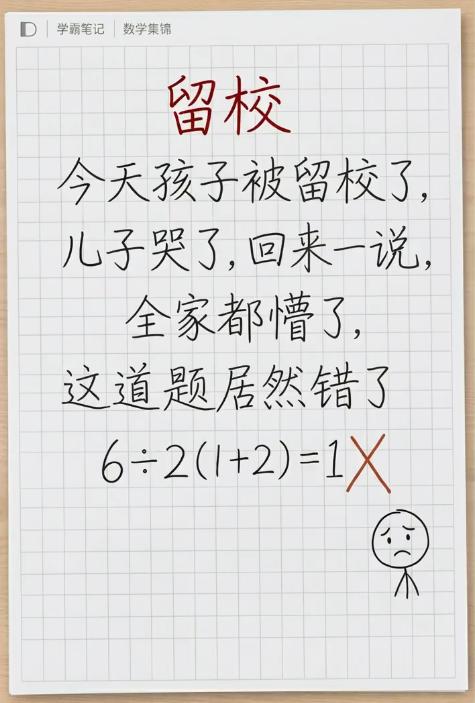 学霸笔记 数学集锦
留校
今天孩子被留校了,
儿子哭了,回来一说,
全家都懵了,
这道题居然错了
6÷2(1+2)=1X